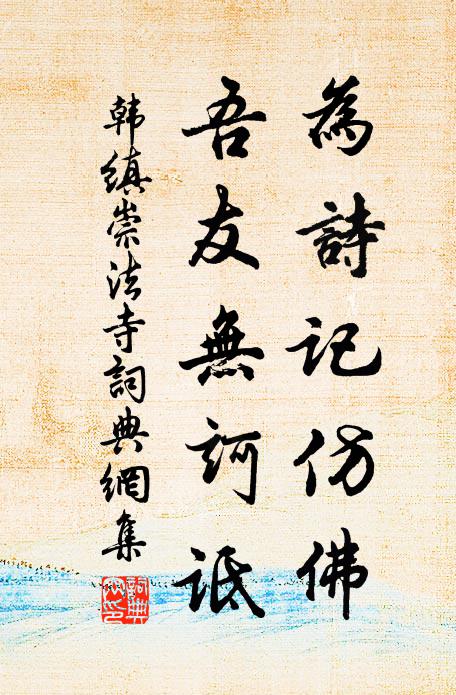 為詩記仿佛
吾友無訶詆
韩縝崇法寺詞典網集